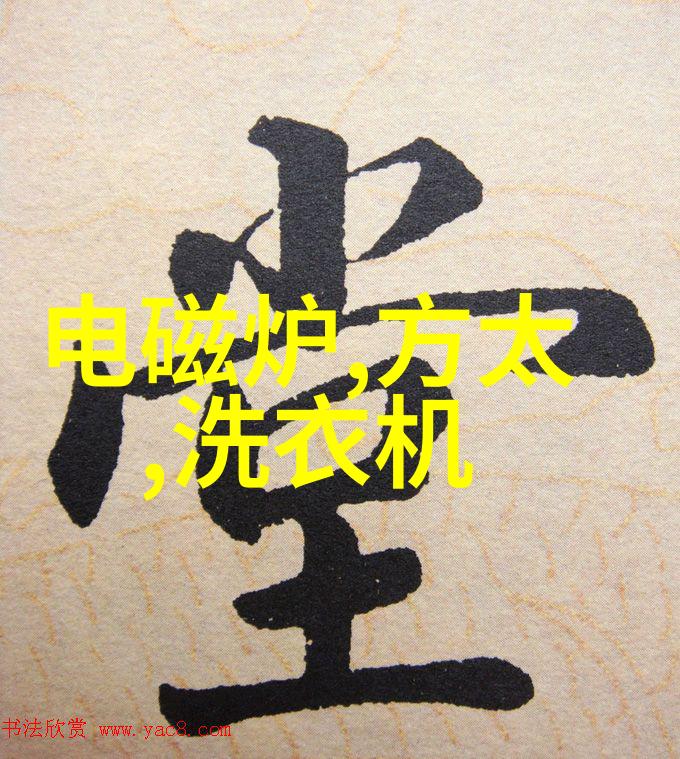 堂
电磁炉,方太
,洗衣机
书法欣赏 www.yac8.com